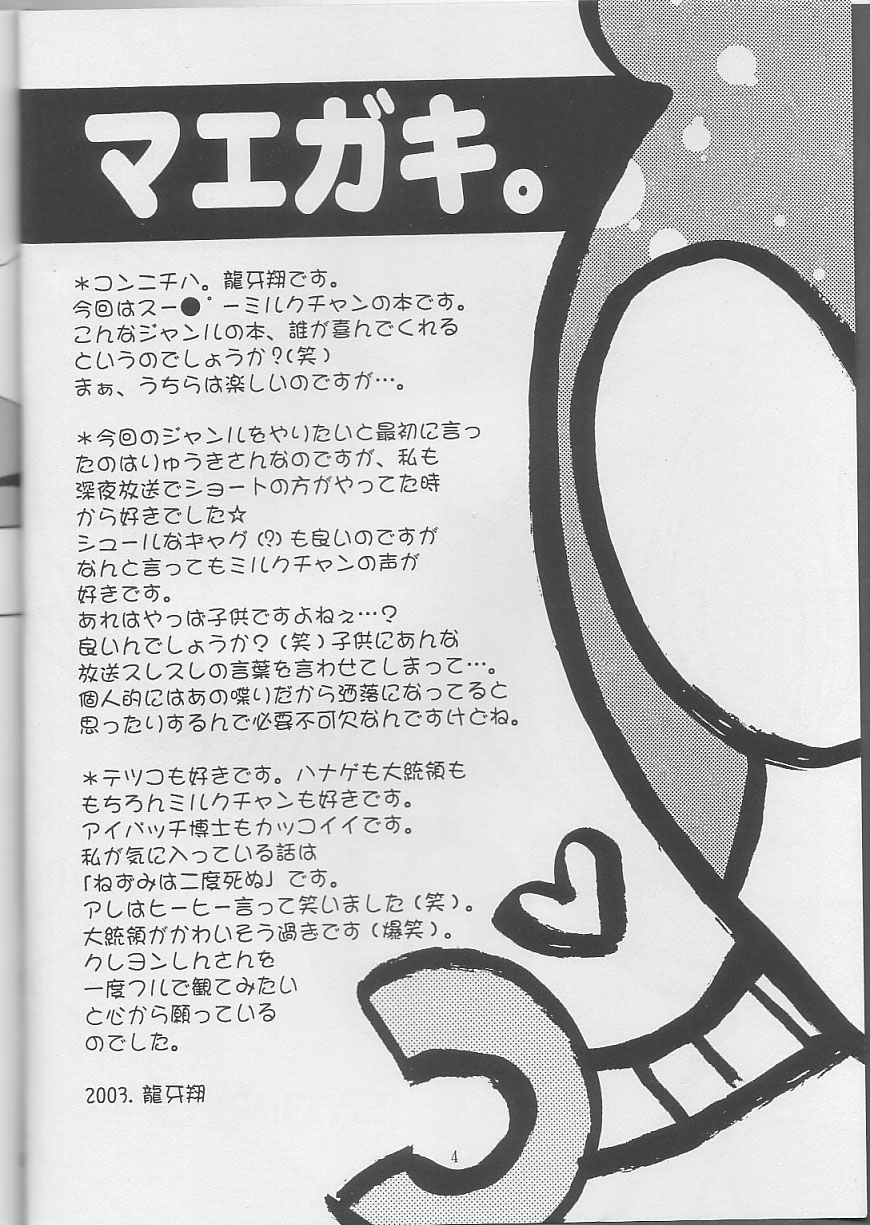 マエガキ。
＊コンニチハ。龍牙翔です。
今回はスー●゜ーミルクチャンの本です。
こんなジャンルの本、誰が喜んでくれる
というのでしょうか？（笑）
まぁ、うちらは楽しいのですが…。
＊今回のジャンルをやりたいと最初に言っ
たのはりゅうきさんなのですが、私も
深夜放送でショートの方がやってた時
から好きでした☆
シュールなギャグ（？）も良いのですが
なんと言ってもミルクチャンの声が
好きです。
あれはやっぱ子供ですよねぇ…？
良いんでしょうか？（笑）子供にあんな
放送スレスレの言葉を言わせてしまって…。
個人的にはあの喋りだから洒落になってると
思ったりするんで必要不可欠なんですけどね。
＊テツコも好きです。ハナゲも大統領も
もちろんミルクチャンも好きです。
アイパッチ博士もカッコイイです。
私が気に入っている話は
「ねずみは二度死ぬ」です。
アレはヒーヒー言って笑いました（笑）。
大統領がかわいそう過ぎです（爆笑）。
クレヨンしんさんを
一度フルで観てみたい
と心から願っている
のでした。
2003. 龍牙翔
4